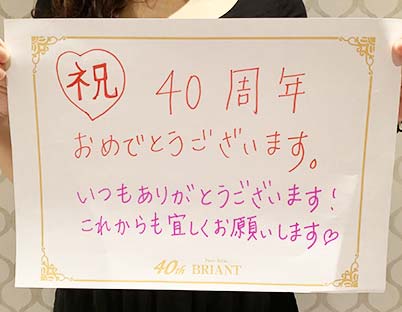 祝 40周年
おめでとうございます。
いつもありがとうございます!
これからも宜しくお願いします♡
40th BRIANT